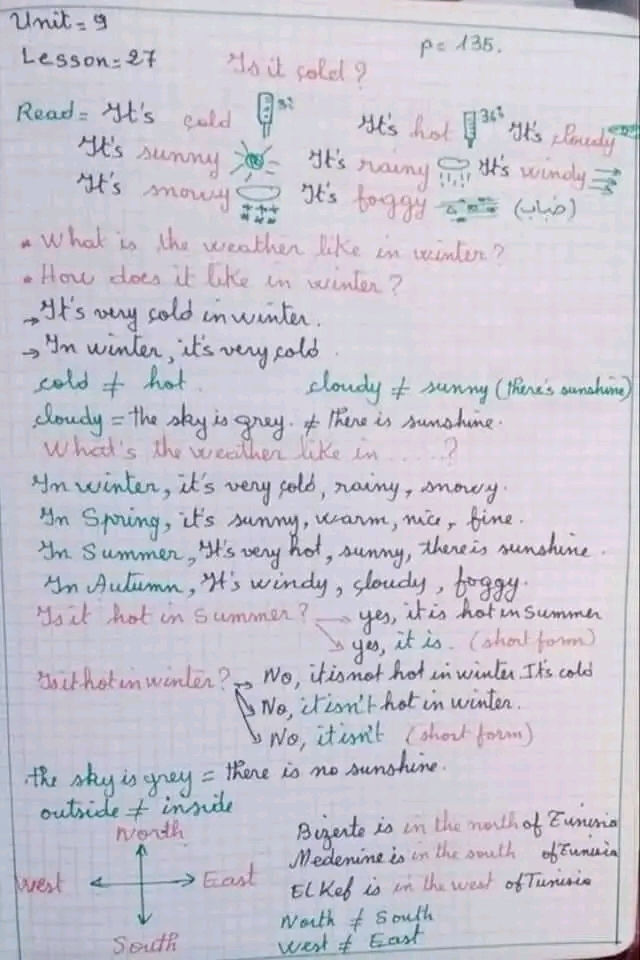 Unit = 9
p = 135.
Lesson = 27
Is it cold ?
Read = It's cold 3° It's hot 36° It's cloudy
It's sunny It's rainy It's windy
It's snowy It's foggy (ضباب)
• What is the weather like in winter?
• How does it like in winter?
→ It's very cold in winter.
→ In winter, it's very cold.
cold ≠ hot. cloudy ≠ sunny (there's sunshine)
cloudy = the sky is grey. ≠ there is sunshine.
What's the weather like in .....?
In winter, it's very cold, rainy, snowy.
In Spring, it's sunny, warm, nice, fine.
In Summer, It's very hot, sunny, there is sunshine.
In Autumn, It's windy, cloudy, foggy.
Is it hot in Summer? → yes, it is hot in Summer
→ yes, it is. (short form)
Is it hot in winter? → No, it is not hot in winter. It's cold
→ No, it isn't hot in winter.
→ No, it isn't (short form)
the sky is grey = there is no sunshine.
outside ≠ inside
North
West East
South
Bizerte is in the north of Tunisia
Medenine is in the south of Tunisia
El Kef is in the west of Tunisia
North ≠ South
West ≠ East